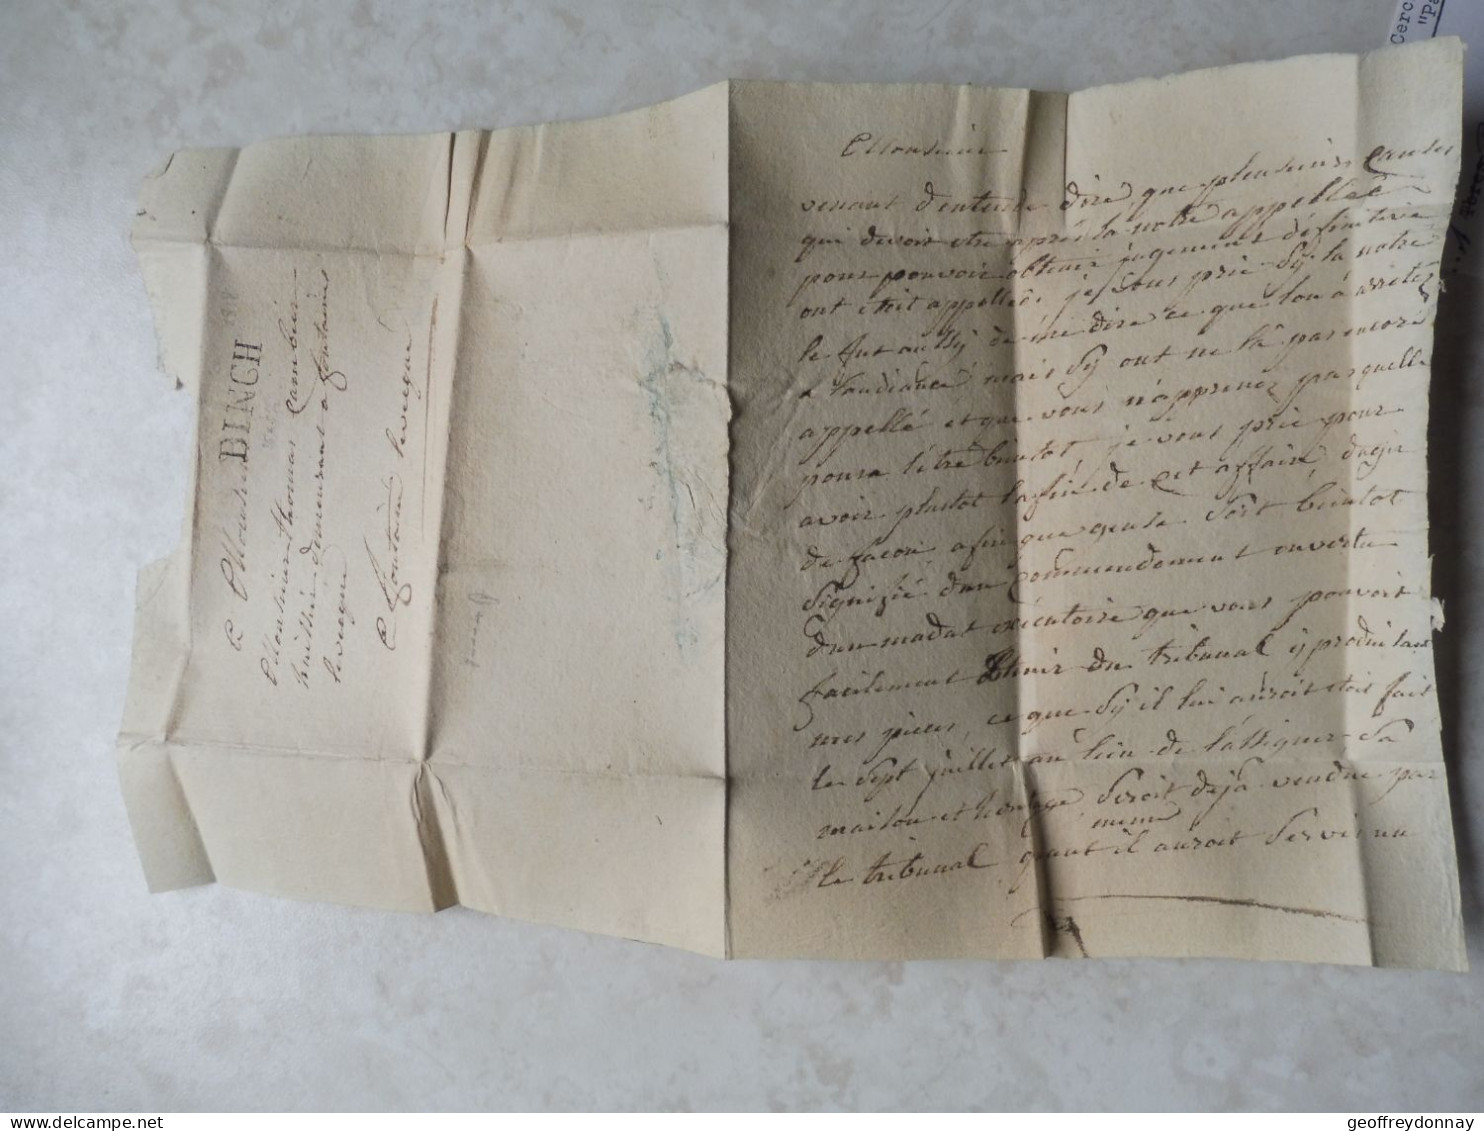 DINCH
A Monsieur
Monsieur thomas Cambier
huissier demeurant a fontaine
leveque
A fontaine leveque
Monsieur
venant d'entendre dire que plusieurs causes
qui devoit etre après la notre appellée
pour pouvoir obtenir jugement définitive
ont étoit appellée, je vous prie Sy la notre
le fut aussy de me dire ce que l'on à arretez
a laudiance mais Sy ont ne la pas encore
appellé et que vous n'apprenez pas quelle
poura l'être bientot, je vous prie pour
avoir plutot la fin de cet affaire, d'agir
de facon, afin que Soit bientot
Signifié d'un commendement en vertu
d'un madat exécutoire que vous pouvoit
facilement obtenir du tribunal y produisant
nos pieces, ce que Sy il lui auroit etois fait
le Sept juillet au lieu de l'assigner Sa
maison et heritage Seroit deja vendue par
le tribunal quant il auroit Servis un
meme
Cerc
"Pa
geoffreydonnay